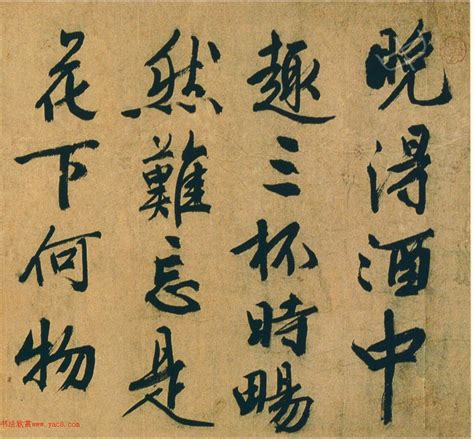 晚得酒中
趣三杯時暢
然難忘是
花下何物
书法欣赏www.yac8.com